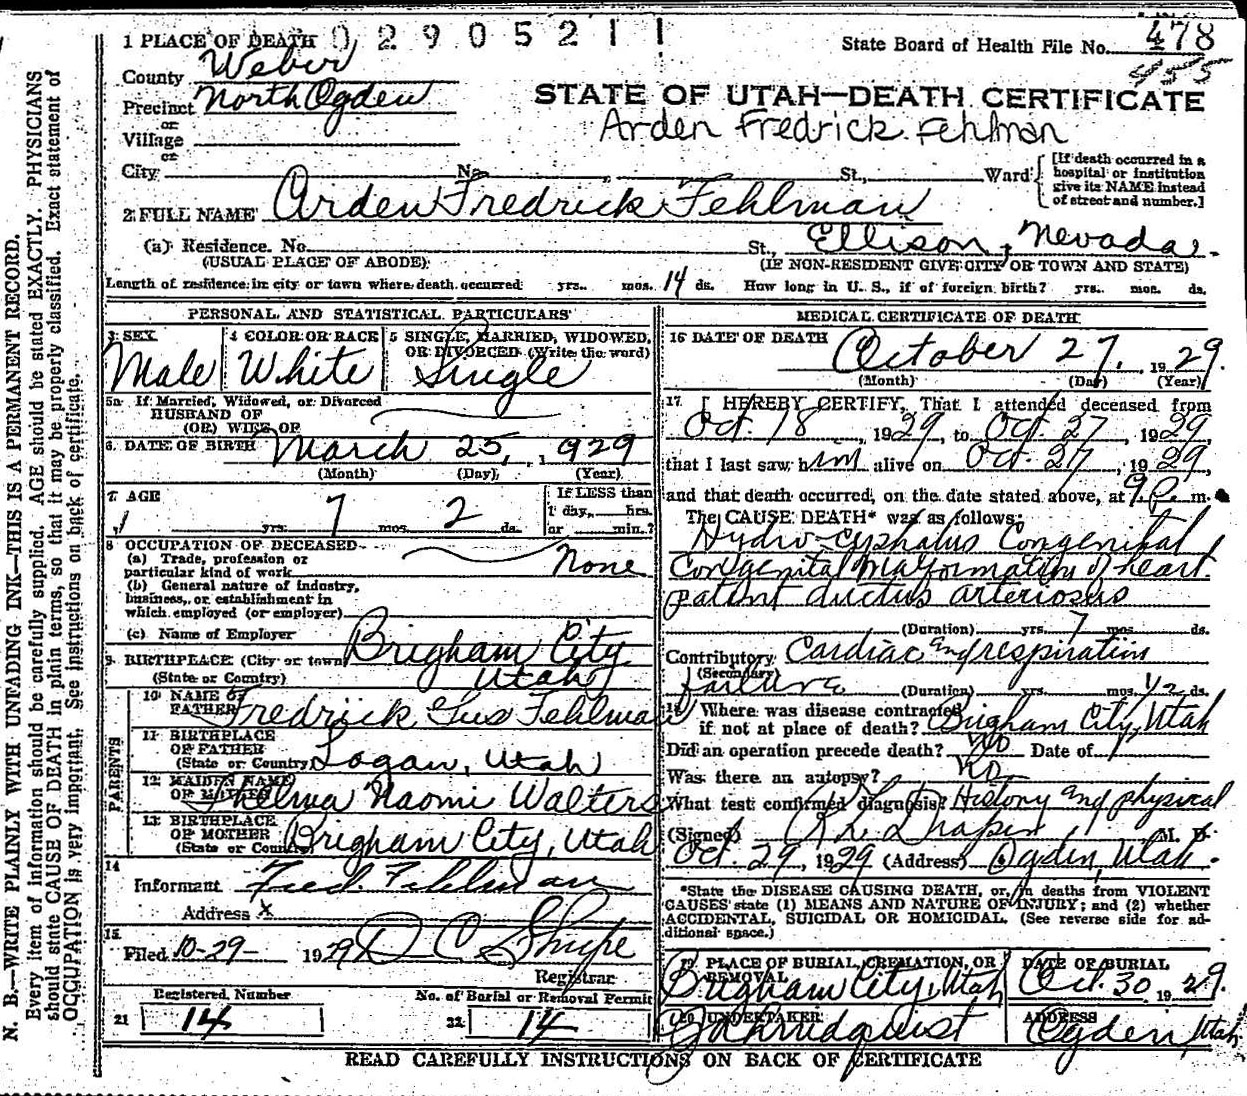 02905211
1 PLACE OF DEATH
State Board of Health File No. 478
455
County Weber
Precinct North Ogden
or
Village
or
City No. St., Ward
[If death occurred in a hospital or institution give its NAME instead of street and number.]
STATE OF UTAH—DEATH CERTIFICATE
Arden Fredrick Fehlman
2 FULL NAME Arden Fredrick Fehlman
(a) Residence. No. St., Ellison, Nevada.
(USUAL PLACE OF ABODE) (IF NON-RESIDENT GIVE CITY OR TOWN AND STATE)
Length of residence in city or town where death occurred yrs. mos. 14 ds. How long in U. S., if of foreign birth? yrs. mos. ds.
PERSONAL AND STATISTICAL PARTICULARS
3 SEX Male
4 COLOR OR RACE White
5 SINGLE, MARRIED, WIDOWED, OR DIVORCED (Write the word) Single
5a If Married, Widowed, or Divorced
HUSBAND OF
(OR) WIFE OF
6 DATE OF BIRTH March 25, 1929
(Month) (Day) (Year)
7 AGE yrs. 7 mos. 2 ds.
If LESS than 1 day, hrs. or min.?
8 OCCUPATION OF DECEASED
(a) Trade, profession or particular kind of work None
(b) General nature of industry, business, or establishment in which employed (or employer)
(c) Name of Employer
9 BIRTHPLACE (City or town) Brigham City
(State or Country) Utah
PARENTS
10 NAME OF FATHER Fredrick Gus Fehlman
11 BIRTHPLACE OF FATHER (State or Country) Logan, Utah
12 MAIDEN NAME OF MOTHER Thelma Naomi Walters
13 BIRTHPLACE OF MOTHER (State or Country) Brigham City, Utah
14
Informant Fred. Fehlman
Address X
15
Filed 10-29- 1929 D C Shupe
Registrar
Registered Number
21 14
No. of Burial or Removal Permit
22 14
MEDICAL CERTIFICATE OF DEATH
16 DATE OF DEATH October 27, 1929.
(Month) (Day) (Year)
17 I HEREBY CERTIFY, That I attended deceased from
Oct. 18, 1929, to Oct. 27, 1929,
that I last saw him alive on Oct. 27, 1929,
and that death occurred, on the date stated above, at 9 P. m.
The CAUSE DEATH* was as follows:
Hydro-cephalus Congenital
Congenital malformation of heart.
patent ductus arteriosus
(Duration) yrs. 7 mos. ds.
Contributory Cardiac and respiration
(Secondary)
failure (Duration) yrs. mos. 1/2 ds.
18 Where was disease contracted
if not at place of death? Brigham City, Utah
Did an operation precede death? No Date of
Was there an autopsy? No
What test confirmed diagnosis? History and physical
(Signed) Draper M. D.
Oct. 29, 1929 (Address) Ogden, Utah.
*State the DISEASE CAUSING DEATH, or, in deaths from VIOLENT
CAUSES state (1) MEANS AND NATURE OF INJURY; and (2) whether
ACCIDENTAL, SUICIDAL OR HOMICIDAL. (See reverse side for ad-
ditional space.)
19 PLACE OF BURIAL, CREMATION, OR REMOVAL Brigham City, Utah
DATE OF BURIAL Oct. 30 1929.
20 UNDERTAKER
ADDRESS Ogden, Utah
READ CAREFULLY INSTRUCTIONS ON BACK OF CERTIFICATE
N. B.—WRITE PLAINLY WITH UNFADING INK—THIS IS A PERMANENT RECORD.
Every item of information should be carefully supplied. AGE should be stated EXACTLY. PHYSICIANS
should state CAUSE OF DEATH in plain terms, so that it may be properly classified. Exact statement of
OCCUPATION is very important. See instructions on back of certificate.